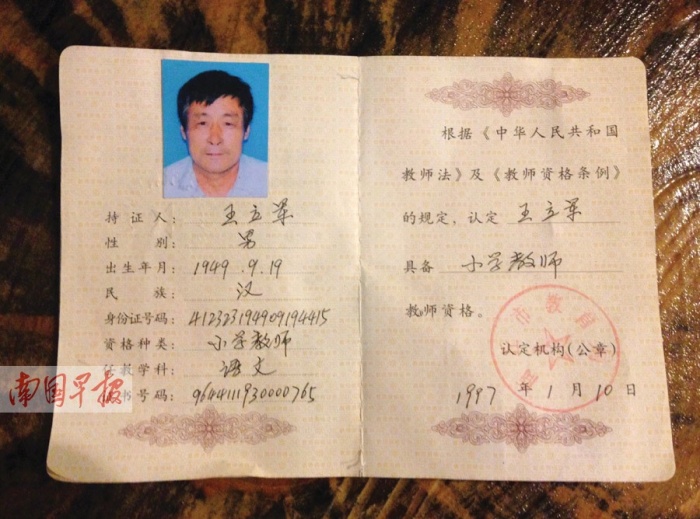 持证人：王立军
性别：男
出生年月：1949.9.19
民族：汉
身份证号码：412323194909194415
资格种类：小学教师
任教学科：语文
证书号码：9644111930000765
南国早报
根据《中华人民共和国
教师法》及《教师资格条例》
的规定，认定 王立军
具备 小学教师
教师资格。
市教育
认定机构（公章）
1997年1月10日